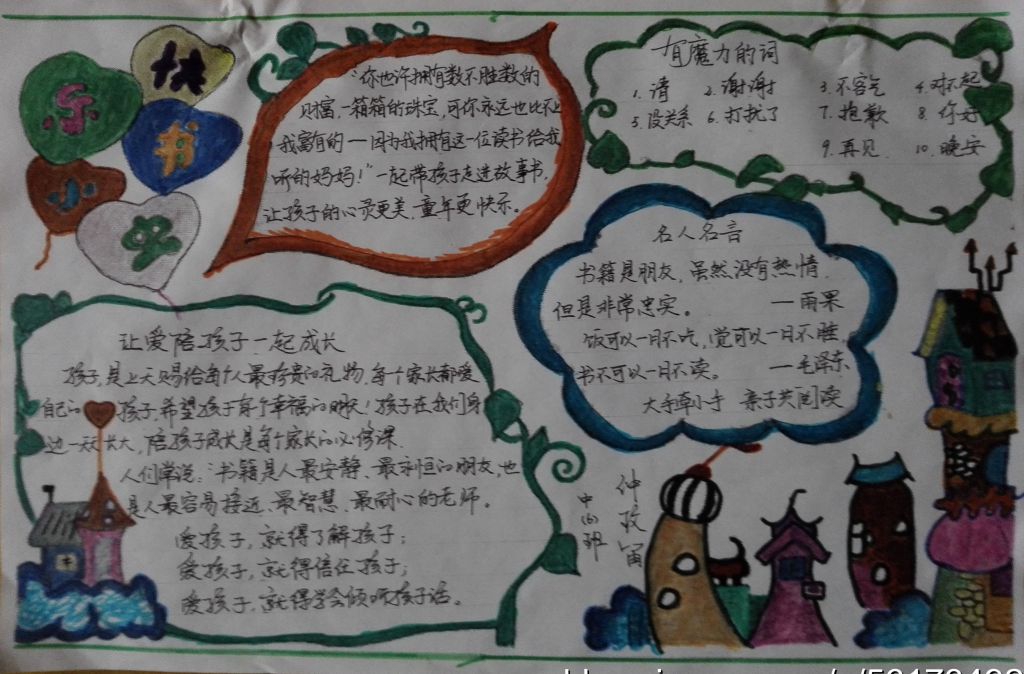 快
乐
书
小
虫
"你也许拥有数不胜数的
财富,一箱箱的珠宝,可你永远也比不上
我富有的——因为我拥有这一位读书给我
听的妈妈!"一起带孩子走进故事书,
让孩子的心灵更美,童年更快乐。
有魔力的词
1. 请 2. 谢谢 3. 不客气 4. 对不起
5. 没关系 6. 打扰了 7. 抱歉 8. 你好
9. 再见 10. 晚安
名人名言
书籍是朋友,虽然没有热情,
但是非常忠实。 —雨果
饭可以一日不吃,觉可以一日不睡,
书不可以一日不读。 —毛泽东
大手牵小手 亲子共阅读
让爱陪孩子一起成长
孩子,是上天赐给每个人最珍贵的礼物,每个家长都爱
自己的孩子,希望孩子有个幸福的明天!孩子在我们身
边一天天长大,陪孩子成长是每个家长的必修课.
人们常说:书籍是人最安静、最永恒的朋友,也
是人最容易接近、最智慧、最耐心的老师。
爱孩子,就得了解孩子;
爱孩子,就得信任孩子;
爱孩子,就得学会倾听孩子话。
中(6)班
仲玫留